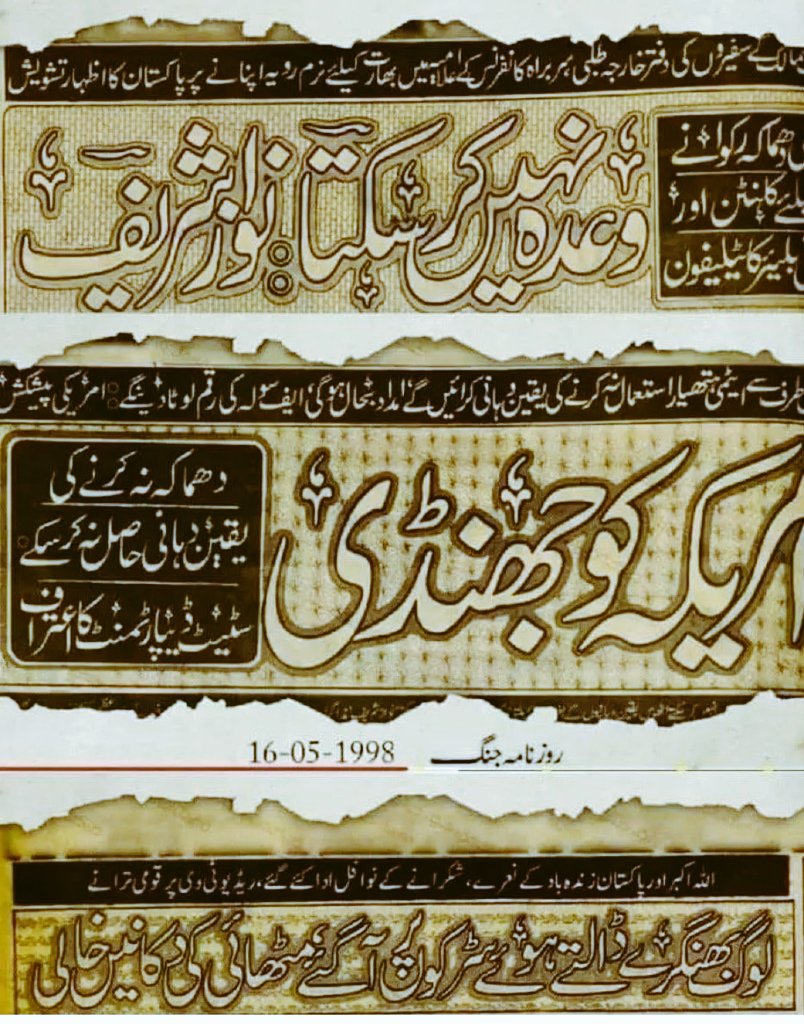 ممالک کے سفیروں کی دفتر خارجہ طلبی سربراہ کانفرنس کے اعلامیہ میں بھارت کیلئے نرم رویہ اپنانے پر پاکستان کا اظہار تشویش
دھماکہ رکوانے
کلنٹن اور
بلیئر کا ٹیلیفون
وعدہ نہیں کر سکتا : نواز شریف
طرف سے ایٹمی ہتھیار استعمال نہ کرنے کی یقین دہانی کرائیں گے امداد بحال ہوگی ایف سولہ کی رقم لوٹا دینگے : امریکی پیشکش
امریکہ کو جھنڈی
دھماکہ نہ کرنے کی
یقین دہانی حاصل نہ کر سکے
سٹیٹ ڈیپارٹمنٹ کا اعتراف
روزنامہ جنگ 16-05-1998
اللہ اکبر اور پاکستان زندہ باد کے نعرے، شکرانے کے نوافل ادا کئے گئے، ریڈیو ٹی وی پر قومی ترانے
لوگ بھنگڑے ڈالتے ہوئے سڑکوں پر آگئے، مٹھائی کی دکانیں خالی